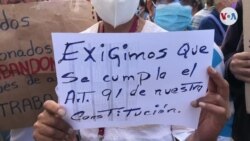 VOA
ionados
BANDON
es de a
TRABA
Exigimos que
se cumpla el
Art 91 de nuestra
constitución.